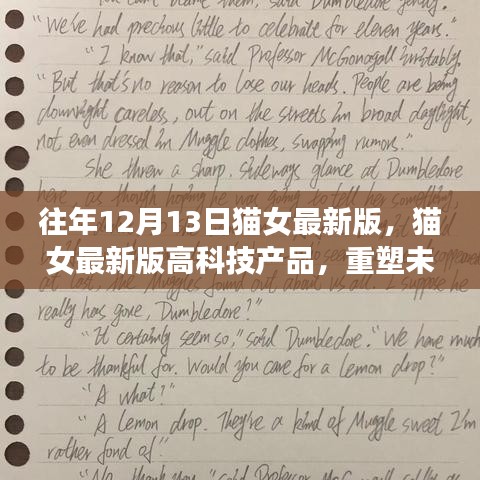 You can't blame them," said Dumbledore gently.
"We've had precious little to celebrate for eleven years."
"I know that," said Professor McGonagall irritably.
"But that's no reason to lose our heads. People are being
downright careless, out on the streets in broad daylight,
not even dressed in Muggle clothes, swapping rumors."
She threw a sharp, sideways glance at Dumbledore
往年12月13日猫女最新版，猫
女最新版高科技产品，重塑未
really has gone, Dumbledore?"
"It certainly seems so," said Dumbledore. "We have much
to be thankful for. Would you care for a lemon drop?"
"A what?"
"A lemon drop. They're a kind of Muggle sweet I'm
rather fond of."
"No, thank you," said Professor